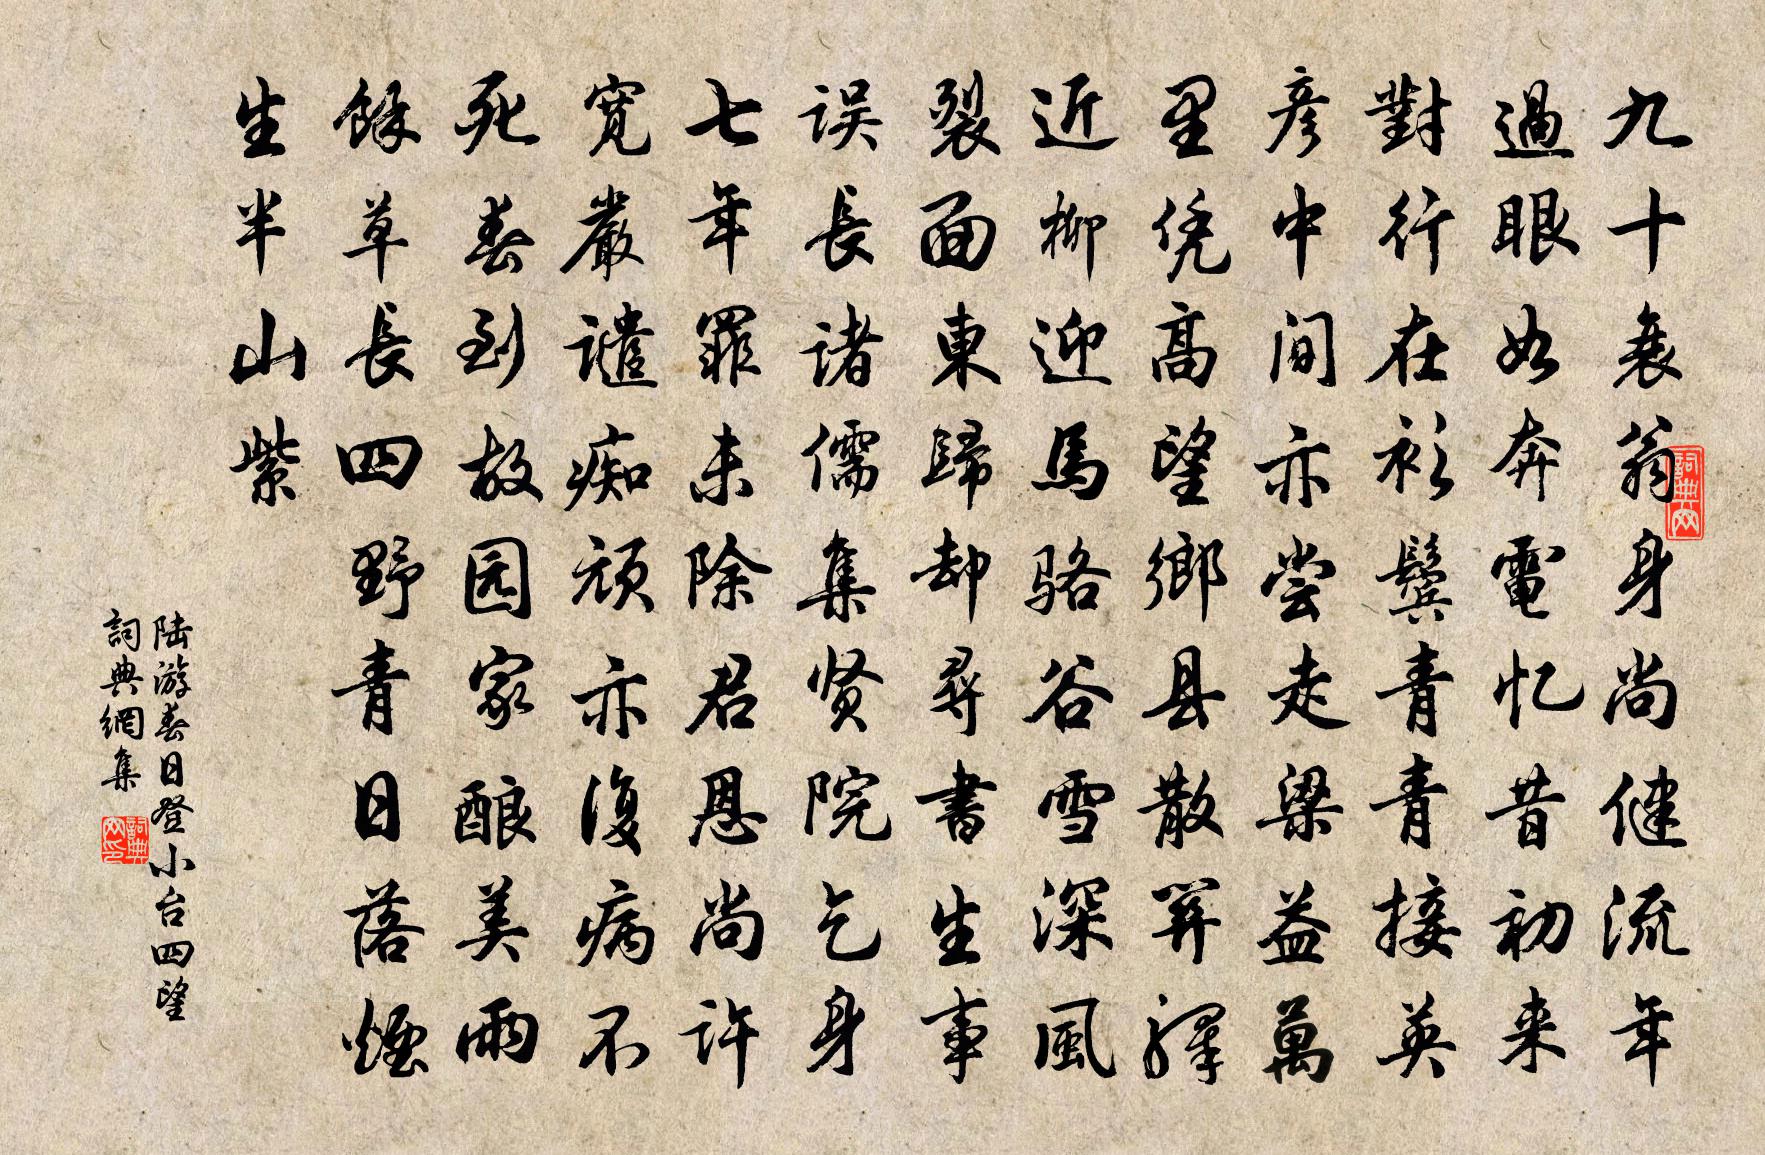 九十衰翁身尚健流年
過眼如奔電忆昔初来
對行在衫鬓青青接英
彦中间亦尝走梁益萬
里凭高望鄉县散関驛
近柳迎馬骆谷雪深風
裂面東歸却尋書生事
误長诸儒集贤院乞身
七年罪未除君恩尚许
寛嚴譴痴顽亦復病不
死春到故园家酿美雨
餘草長四野青日落煙
生半山紫
陆游春日登小台四望
詞典網集
詞典网
詞典网印